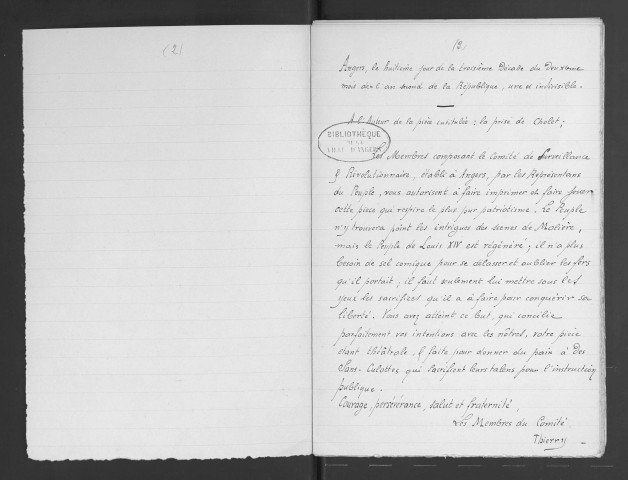 (2)
(3)
Angers, le huitième jour de la troisième Décade du Deuxième
mois de l'an second de la République, une et indivisible.
A l'Auteur de la pièce intitulée : la prise de Cholet ;
BIBLIOTHÈQUE
DE LA
VILLE D'ANGERS
Les Membres composant le Comité de Surveillance
& Révolutionnaire, établi à Angers, par les Représentans
du Peuple, vous autorisent à faire imprimer et faire jouer
cette pièce qui respire le plus pur patriotisme. Le Peuple
n'y trouvera point les intrigues des scènes de Molière,
mais le Peuple de Louis XIV est régénéré ; il n'a plus
besoin de sel comique pour se délasser et oublier les fers
qu'il portait ; il faut seulement lui mettre sous les
yeux les sacrifices qu'il a à faire pour conquérir sa
liberté. Vous avez atteint ce but, qui concilie
parfaitement vos intentions avec les nôtres, votre pièce
étant théâtrale, & faite pour donner du pain à des
Sans-Culottes qui sacrifient leurs talens pour l'instruction
publique.
Courage, persévérance, salut et fraternité,
Les Membres du Comité
Thierry